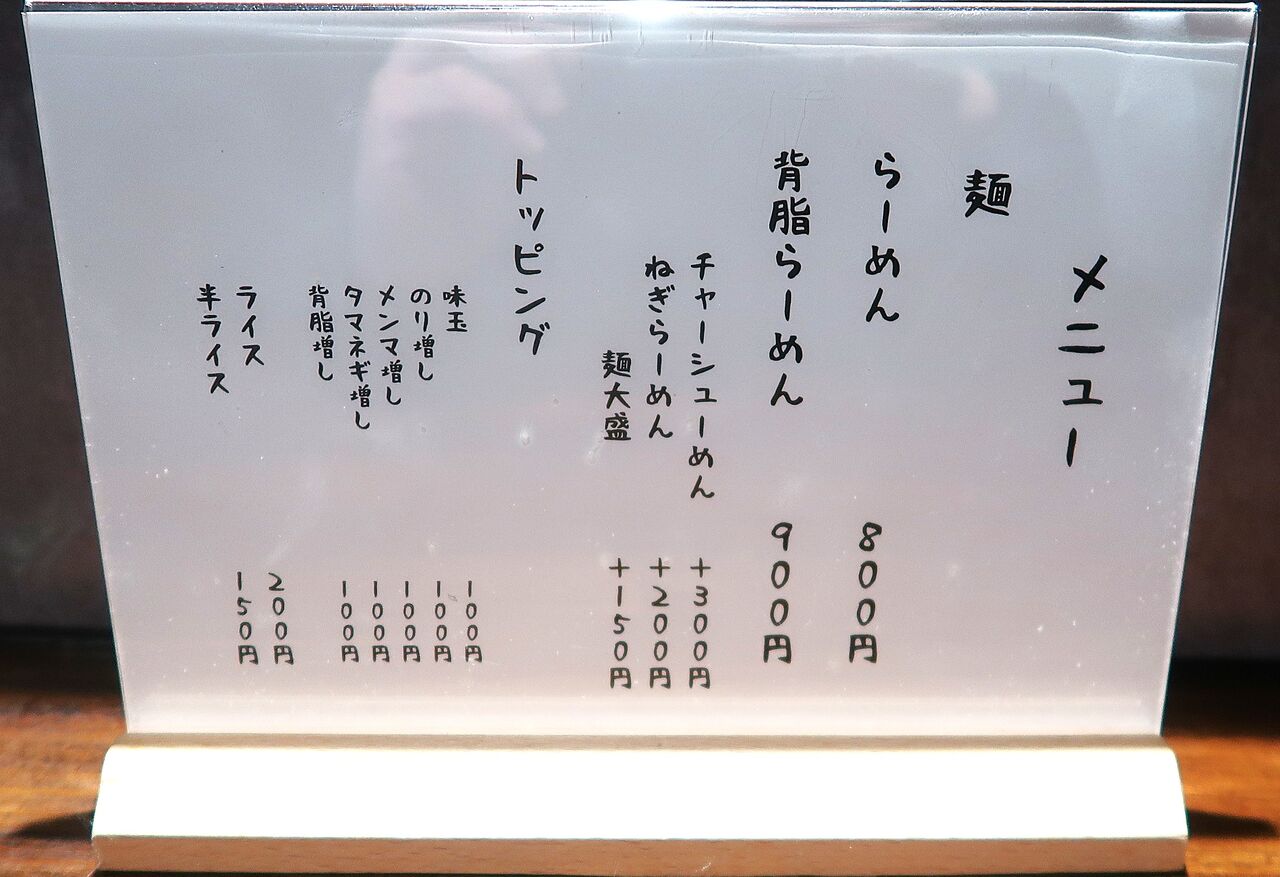 メニュー
麺
らーめん 800円
背脂らーめん 900円
チャーシューめん +300円
ねぎらーめん +200円
麺大盛 +150円
トッピング
味玉 100円
のり増し 100円
メンマ増し 100円
タマネギ増し 100円
背脂増し 100円
ライス 200円
半ライス 150円